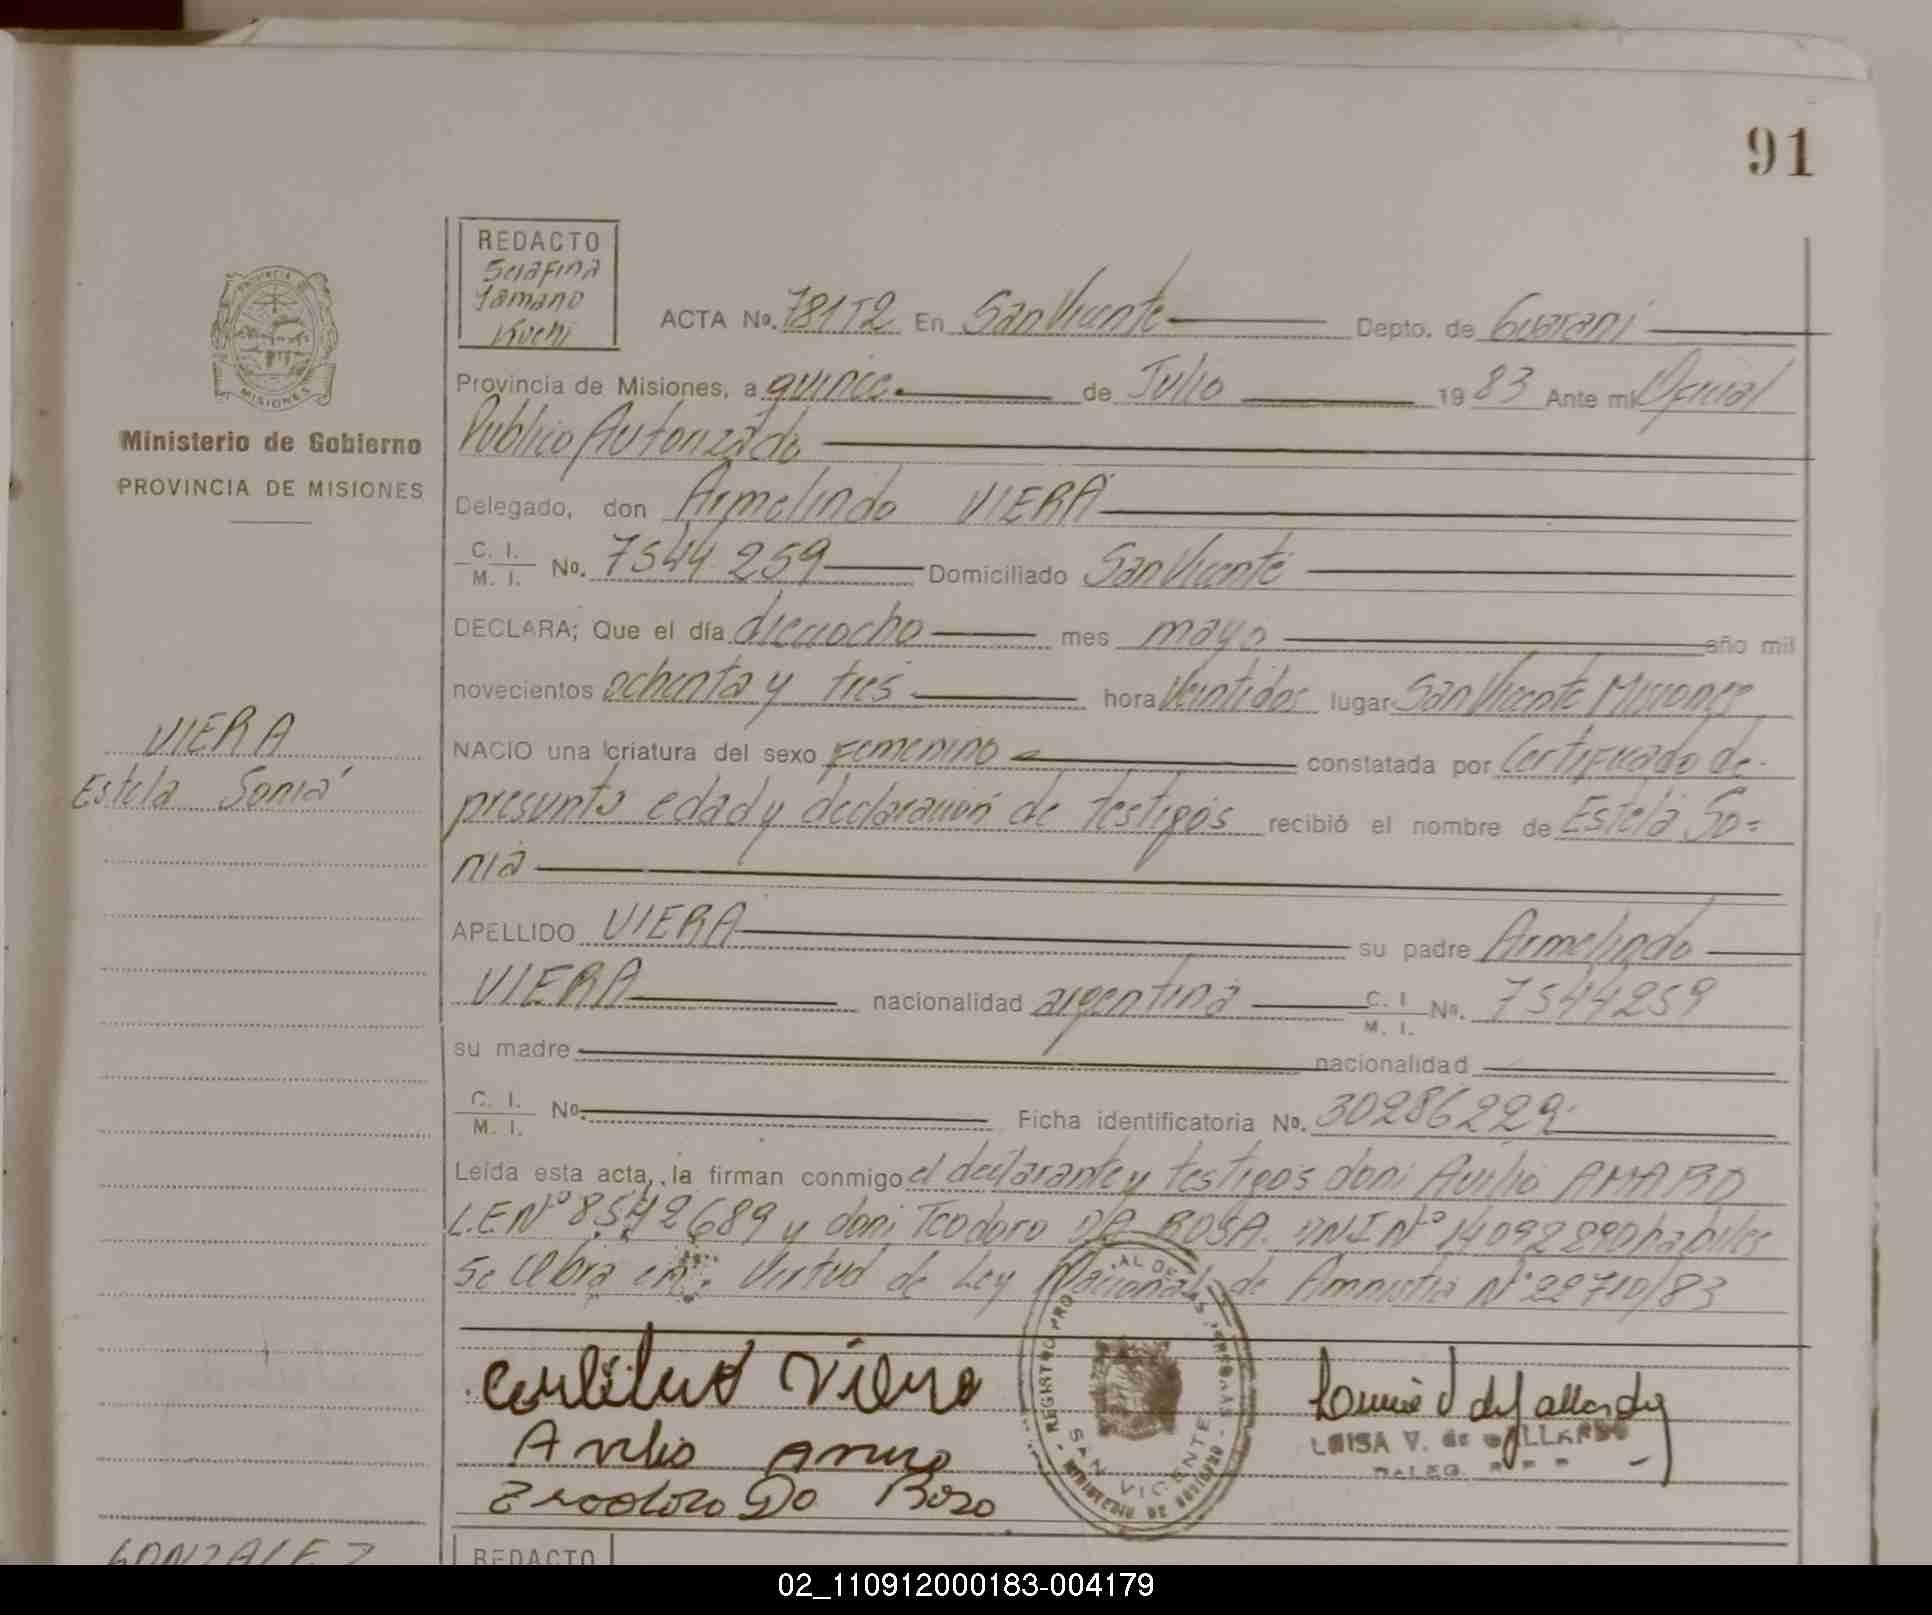 91
REDACTO
Serafina
Yamano
Kuchi
ACTA No. 781T2 En San Vicente Depto. de Guarani
Provincia de Misiones, a quince de Julio 1983 Ante mi Oficial
Publico Autorizado
Delegado, don Armelindo VIERA
C. I.
M. I. No. 7544.259 Domiciliado San Vicente
DECLARA; Que el día dieciocho mes mayo año mil
novecientos ochenta y tres hora veintidos lugar San Vicente Misiones
NACIO una criatura del sexo Femenino constatada por Certificado de
presunta edad y declaración de testigos recibió el nombre de Estela So=
nia
APELLIDO VIERA su padre Armelindo
VIERA nacionalidad argentina C. I. M. I. No. 7544259
su madre nacionalidad
C. I.
M. I. No. Ficha identificatoria No. 30286229
Leída esta acta, la firman conmigo el declarante y testigos don: Avilio AMARO
L.E Nº 8542689 y don: Teodoro DA ROSA. DNI Nº 14092290 habiles
Se labra en virtud de Ley Nacional de Amnistia Nº 22710/83
Ministerio de Gobierno
PROVINCIA DE MISIONES
PROVINCIA DE
MISIONES
VIERA
Estela Sonia
Viera
Avilio Amaro
Teodoro Da Rosa
SAN VICENTE
LUISA V. de GALLARDO
DELEG.
GONZALEZ
REDACTO
02_110912000183-004179